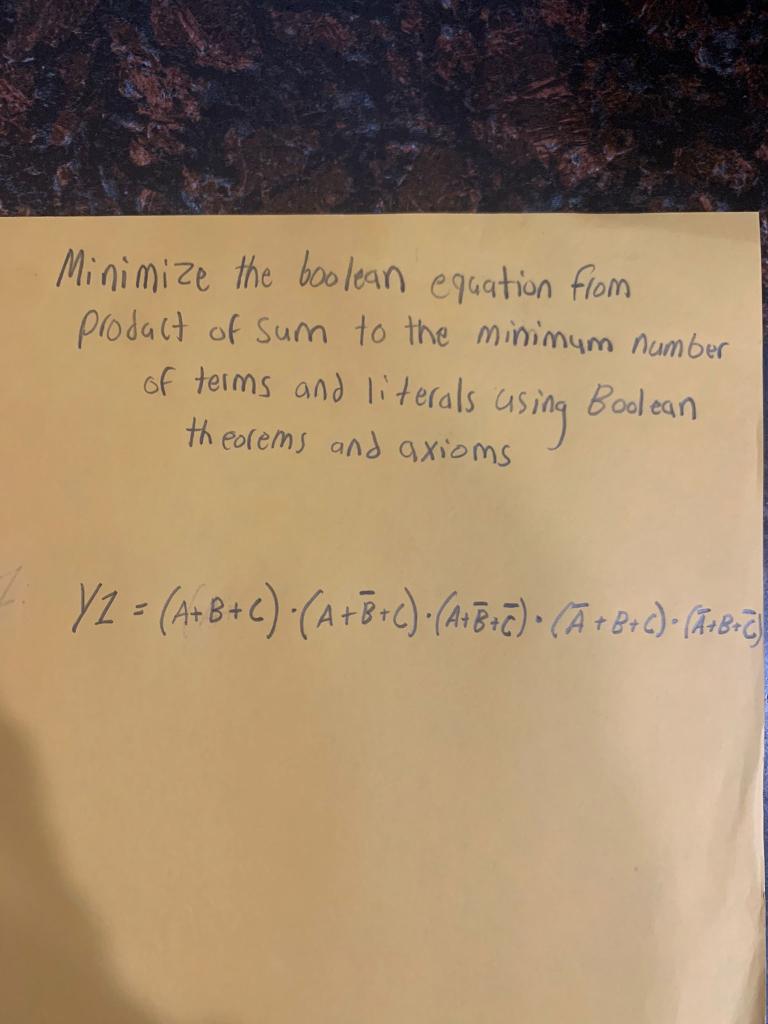 Minimize the boolean equation from
product of sum to the minimum number
of terms and literals using Boolean
theorems and axioms
Y1 = (A+B+C)·(A+B̅+C)·(A+B̅+C̅)·(A̅+B+C)·(A̅+B+C̅)